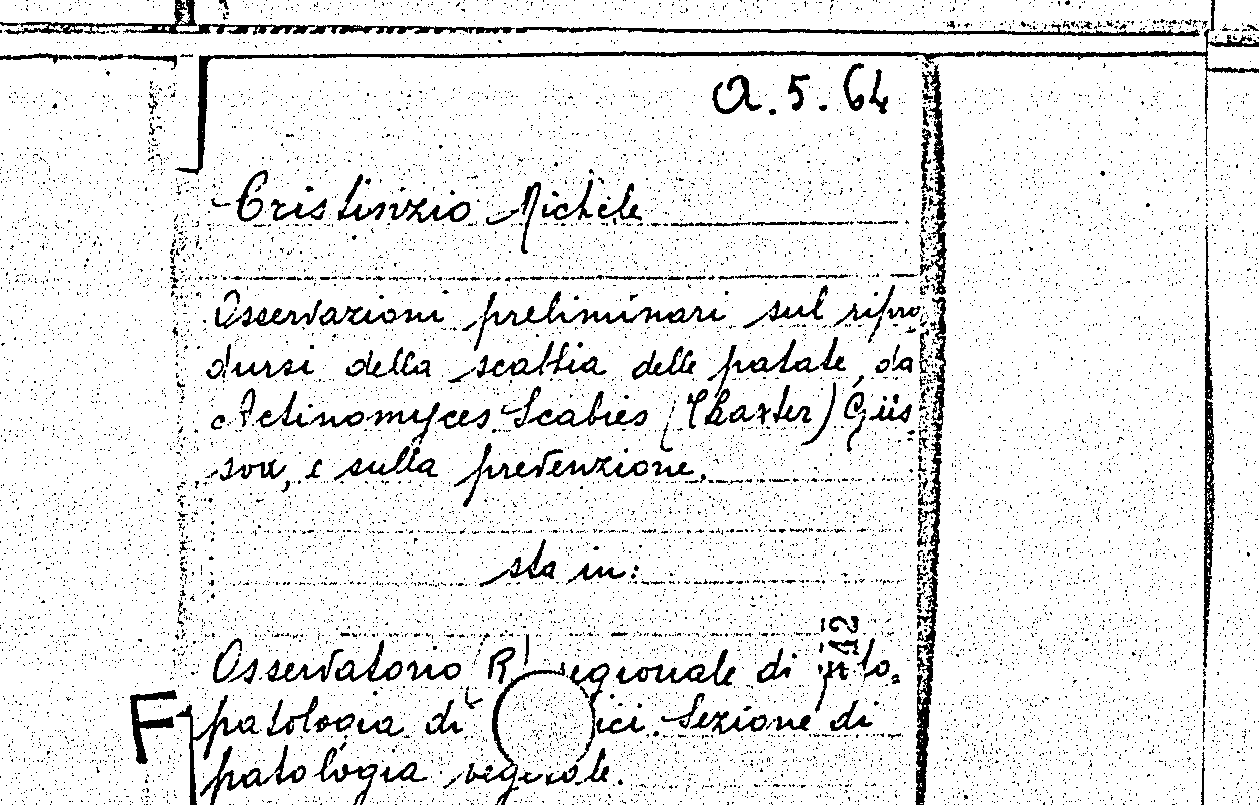 a.5.64
Cristinzio Michele
Osservazioni preliminari sul ripro
dursi della scabbia delle patate, da
Actinomyces Scabies (Thaxter) Güs-
sow, e sulla prevenzione.
sta in:
Osservatorio di
42
F
patologia di Sezione di
patologia